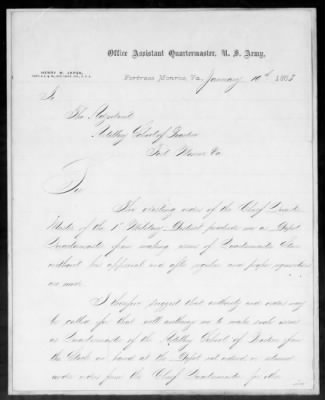 Office Assistant Quartermaster, U. S. Army,
HENRY W. JANES,
Fortress Monroe, Va., January 10th 186
To
The Adjutant
Artillery School of Practice
Fort Monroe Va.
Sir
The existing orders of the Chief Quarter
Master of the 1st Military District prohibits me as Depot
Quartermaster from making issues of Quartermaster Stores
without his approval and after regular and proper requisitions
are made.
I therefore suggest that authority and orders may
be called for that will authorize me to make such issues
as Quartermaster of the Artillery School of Practice from
the Stock on hand at the Depot
under orders from the Chief Quartermaster for the